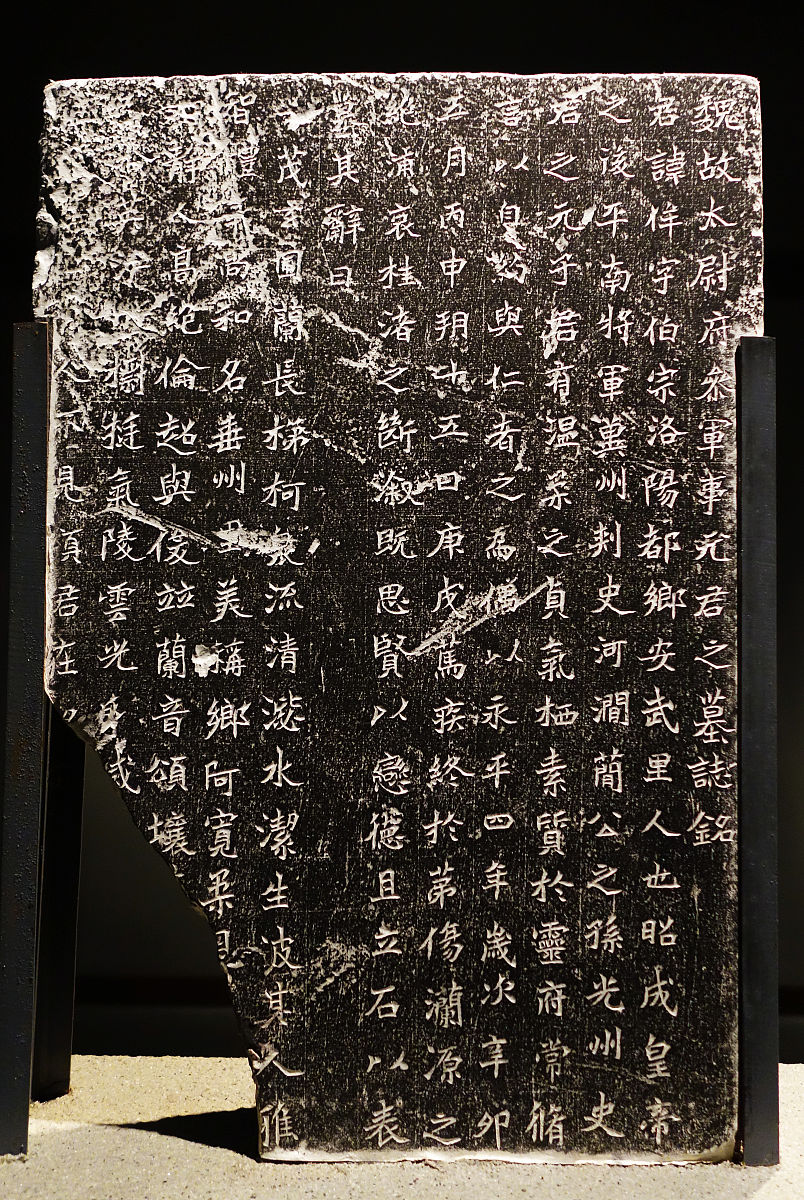 魏故太尉府叅軍事元君之墓誌銘
君諱侔字伯宗洛陽都鄉安武里人也昭成皇帝
之後平南將軍冀州刾史河澗簡公之孫光州史
君之元子君有溫柔之貞氣栖素質於靈府常脩
言以自約與仁者之為儔以永平四年歲次辛卯
五月丙申朔十五日庚戌篤疾終於第傷瀾源之
絕浦哀桂渚之斷漵既思賢以戀德且立石以表
墓其辭曰
茂玄圃蘭長柯泉流清水潔生波其人雅
智禮尚和名華州里美稱鄉阿寬柔
靜人昌絕倫超與俊竝蘭音頌壤
獨挺氣陵雲光
見頃君在